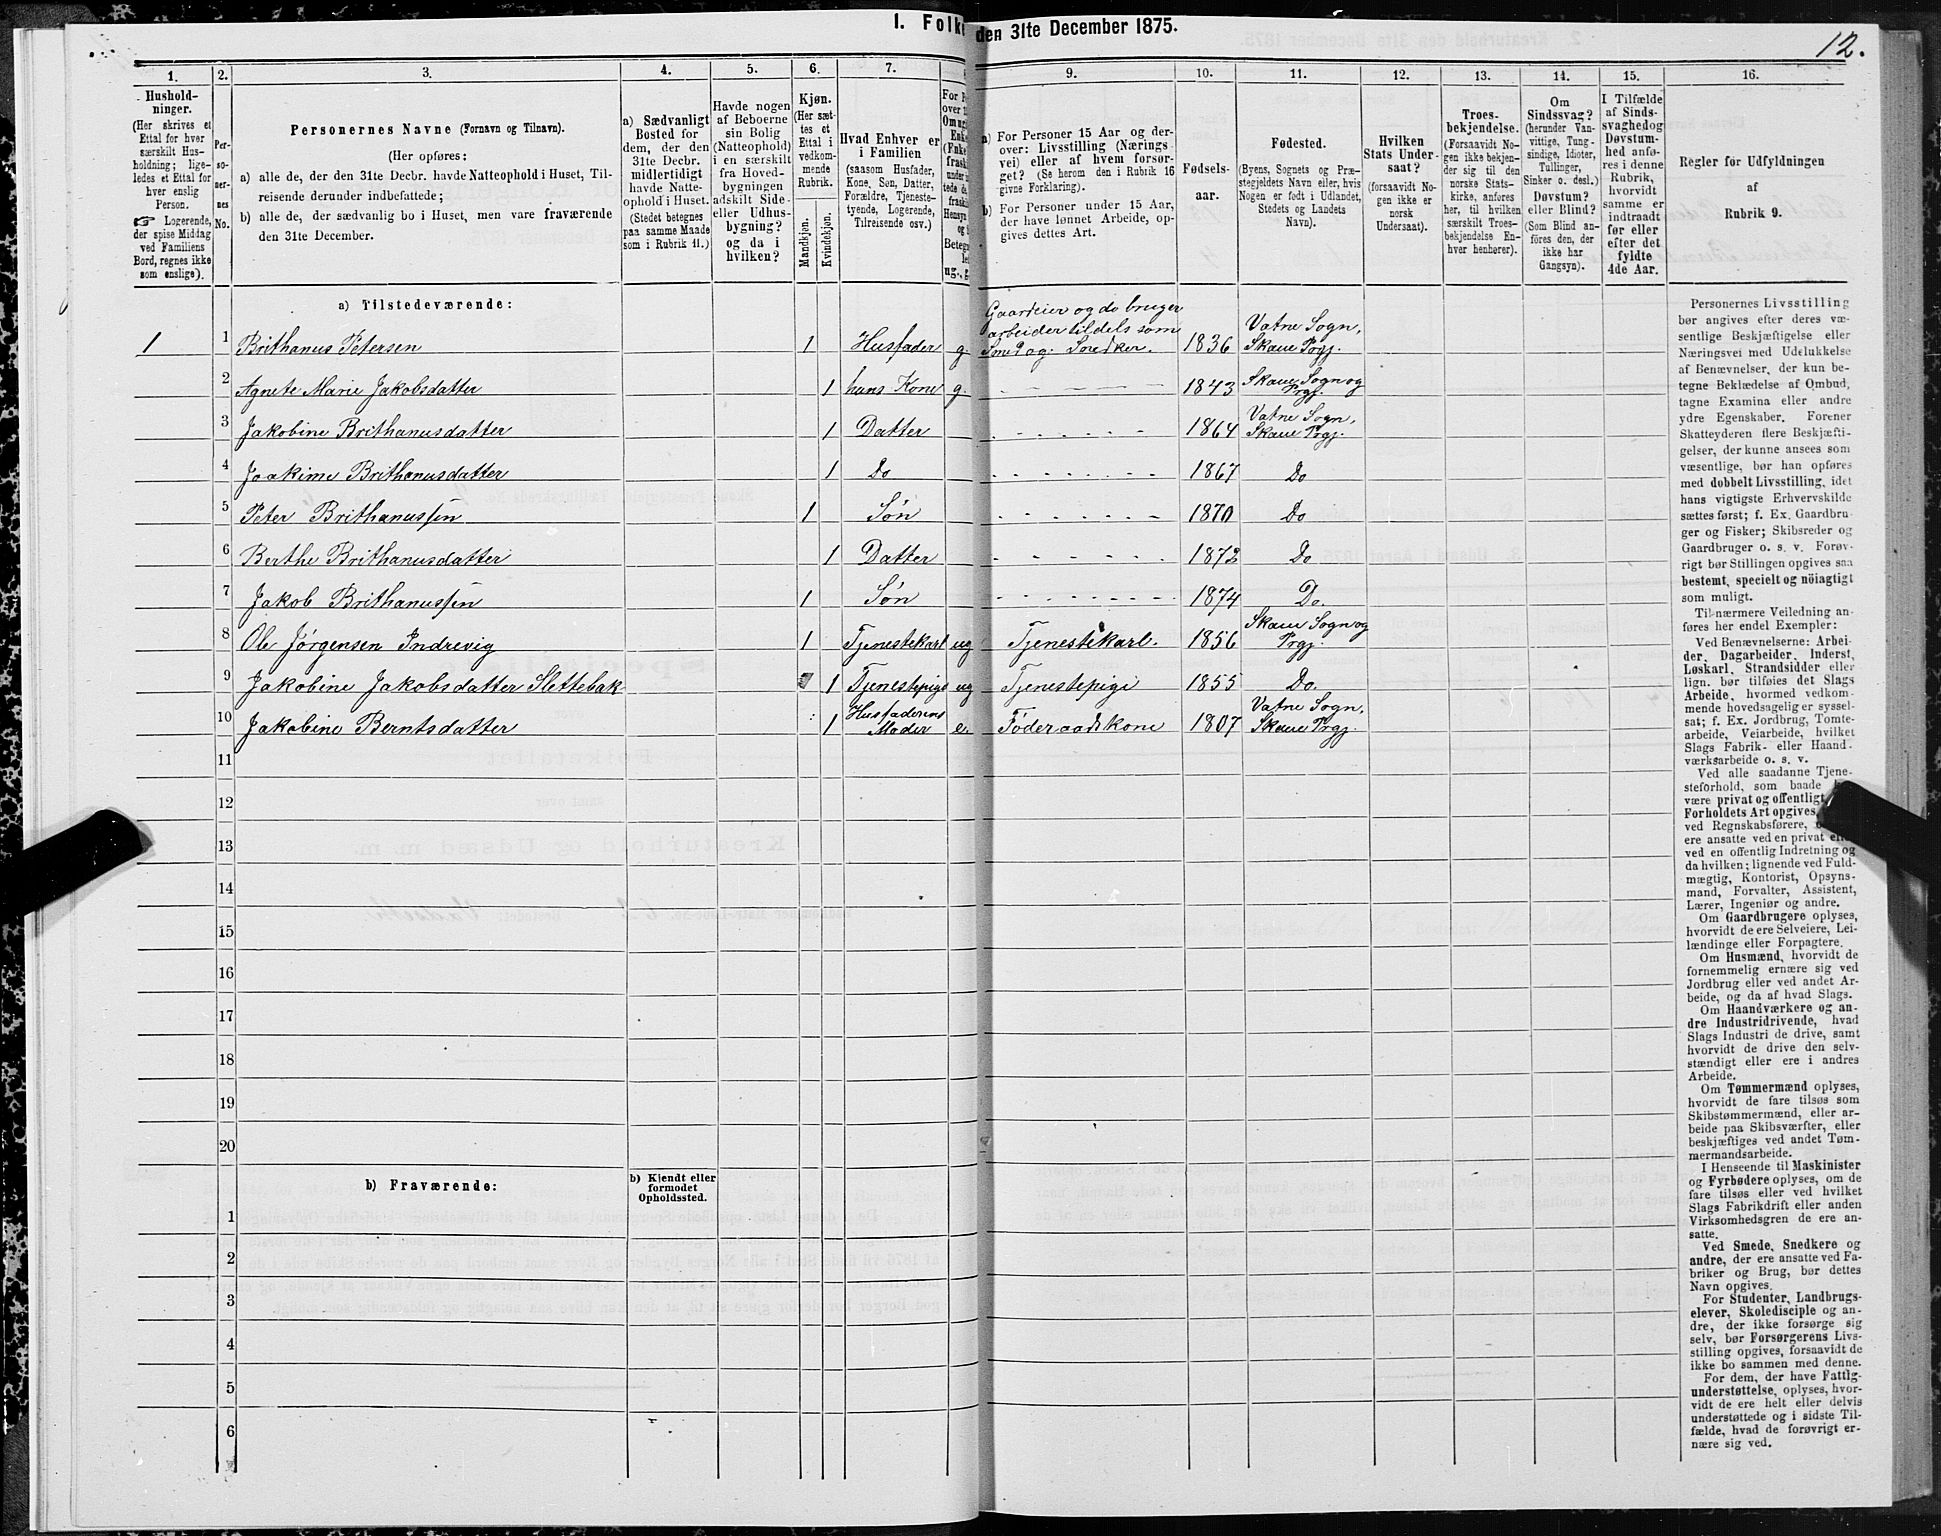 I. Folke
den 31te December 1875.
12.
1.
2.
3.
4.
5.
6.
7.
9.
10.
11.
12.
13.
14.
15.
16.
Hushold-
ninger.
(Her skrives et
Ettal for hver
særskilt Hus-
holdning; lige-
ledes et Ettal for
hver enslig
Person.
☞ Logerende,
der spise Middag
ved Familiens
Bord, regnes ikke
som enslige).
Per-
so-
ner-
nes
No.
Personernes Navne (Fornavn og Tilnavn).
(Her opføres:
a) alle de, der den 31te Decbr. havde Natteophold i Huset, Til-
reisende derunder indbefattede;
b) alle de, der sædvanlig bo i Huset, men vare fraværende
den 31te December.
a) Sædvanligt
Bosted for
dem, der den
31te Decbr.
midlertidigt
havde Natte-
ophold i Huset.
(Stedet betegnes
paa samme Maade
som i Rubrik 11.)
Havde nogen
af Beboerne
sin Bolig
(Natteophold)
i en særskilt
fra Hoved-
bygningen
adskilt Side-
eller Udhus-
bygning?
og da i
hvilken?
Kjøn.
(Her sæt-
tes et
Ettal i
vedkom-
mende
Rubrik.
Mandkjøn.
Kvindekjøn.
Hvad Enhver er
i Familien
(saasom Husfader,
Kone, Søn, Datter,
Forældre, Tjeneste-
tyende, Logerende,
Tilreisende osv.)
a) For Personer 15 Aar og der-
over: Livsstilling (Nærings-
vei) eller af hvem forsør-
get? (Se herom den i Rubrik 16
givne Forklaring).
b) For Personer under 15 Aar,
der have lønnet Arbeide, op-
gives dettes Art.
Fødsels-
aar.
Fødested.
(Byens, Sognets og Præ-
stegjeldets Navn eller, hvis
Nogen er født i Udlandet,
Stedets og Landets
Navn).
Hvilken
Stats Under-
saat?
(forsaavidt No-
gen ikke er
norsk
Undersaat).
Troes-
bekjendelse.
(Forsaavidt No-
gen ikke bekjen-
der sig til den
norske Stats-
kirke, anføres
her, til hvilken
særskilt Troes-
bekjendelse En-
hver henhører).
Om
Sindssvag?
(herunder Van-
vittige, Tung-
sindige, Idioter,
Tullinger,
Sinker o. desl.)
Døvstum?
eller Blind?
(Som Blind an-
føres den, der
ikke har
Gangsyn).
I Tilfælde
af Sinds-
svaghed og
Døvstum-
hed anfø-
res i denne
Rubrik,
hvorvidt
samme er
indtraadt
før eller
efter det
fyldte
4de Aar.
Regler for Udfyldningen
af
Rubrik 9.
a) Tilstedeværende:
Gaardeier og do bruger
arbeider tildels som
1 1 Brithanus Petersen 1 Husfader g. Smed og Snedker. 1836 Vatne Sogn, Skaue Prgj.
2 Agnete Marie Jakobsdatter 1 hans Kone g. 1843 Skaue Sogn og Prgj.
3 Jakobine Brithanusdatter 1 Datter 1864 Vatne Sogn, Skaue Prgj.
4 Joakime Brithanusdatter 1 Do 1867 Do
5 Peter Brithanussen 1 Søn 1870 Do
6 Berthe Brithanusdatter 1 Datter 1872 Do
7 Jakob Brithanussen 1 Søn 1874 Do.
8 Ole Jørgensen Indrevig 1 Tjenestekarl ug Tjenestekarl. 1856 Skaue Sogn og Prgj.
9 Jakobine Jakobsdatter Slettebak 1 Tjenestepige ug Tjenestepige 1855 Do.
10 Jakobine Berntsdatter 1 Husfaderens Moder e. Føderaadskone 1807 Vatne Sogn, Skaue Prgj.
11
12
13
14
15
16
17
18
19
20
b) Fraværende:
b) Kjendt eller
formodet
Opholdssted.
1
2
3
4
5
6
Personernes Livsstilling
bør angives efter deres væ-
sentlige Beskjæftigelse eller
Næringsvei med Udelukkelse
af Benævnelser, der kun be-
tegne Beklædelse af Ombud,
tagne Examina eller andre
ydre Egenskaber. Forener
Skatteyderen flere Beskjæfti-
gelser, der kunne ansees som
væsentlige, bør han opføres
med dobbelt Livsstilling, idet
hans vigtigste Erhvervskilde
sættes først; f. Ex. Gaardbru-
ger og Fisker; Skibsreder og
Gaardbruger o. s. v. Forøv-
rigt bør Stillingen opgives saa
bestemt, specielt og nöiagtigt
som muligt.
Til nærmere Veiledning an-
føres her endel Exempler:
Ved Benævnelserne: Arbei-
der, Dagarbeider, Inderst,
Løskarl, Strandsidder eller
lign. bør tilføies det Slags
Arbeide, hvormed vedkom-
mende hovedsagelig er syssel-
sat; f. Ex. Jordbrug, Tomte-
arbeide, Veiarbeide, hvilket
Slags Fabrik- eller Haand-
værksarbeide o. s. v.
Ved alle saadanne Tjene-
steforhold, som baade
være privat og offentligt
Forholdets Art opgives,
ved Regnskabsførere,
ere ansatte ved en privat
ved en offentlig Indretning og
da hvilken; lignende ved Fuld-
mægtig, Kontorist, Opsyns-
mand, Forvalter, Assistent,
Lærer, Ingeniør og andre.
Om Gaardbrugere oplyses,
hvorvidt de ere Selveiere, Lei-
lændinge eller Forpagtere.
Om Husmænd, hvorvidt de
fornemmelig ernære sig ved
Jordbrug eller ved andet Ar-
beide, og da af hvad Slags.
Om Haandværkere og an-
dre Industridrivende, hvad
Slags Industri de drive, samt
hvorvidt de drive den selv-
stændigt eller ere i andres
Arbeide.
Om Tømmermænd oplyses,
hvorvidt de fare tilsøs som
Skibstømmermænd, eller ar-
beide paa Skibsværfter, eller
beskjæftiges ved andet Tøm-
mermandsarbeide.
I Henseende til Maskinister
og Fyrbødere oplyses, om de
fare tilsøs eller ved hvilket
Slags Fabrikdrift eller anden
Virksomhedsgren de ere an-
satte.
Ved Smede, Snedkere og
andre, der ere ansatte ved Fa-
briker og Brug, bør dettes
Navn opgives.
For Studenter, Landbrugs-
elever, Skoledisciple og an-
dre, der ikke forsørge sig
selv, bør Forsørgerens Livs-
stilling opgives, forsaavidt de
ikke bo sammen med denne.
For dem, der have Fattig-
understøttelse, oplyses, hvor-
vidt de ere helt eller delvis
understøttede og i sidste Til-
fælde, hvad de forøvrigt er-
nære sig ved.